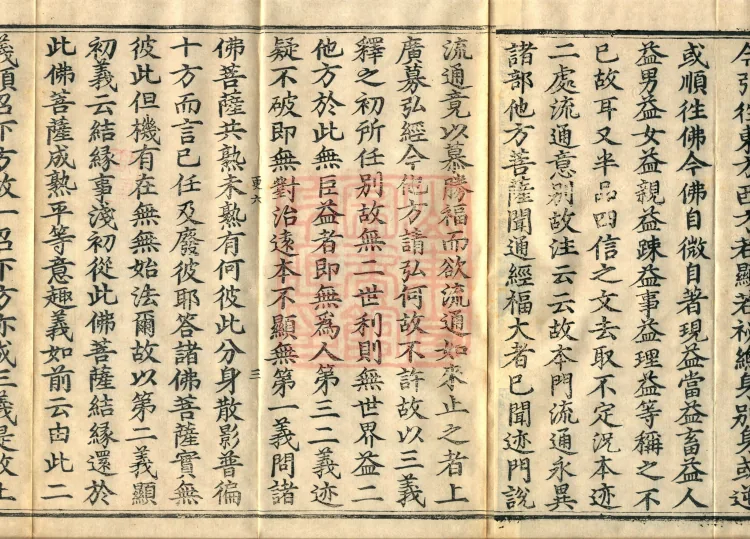 或順往佛今佛自微自著現益當益畜益人
益男益女益親益踈益事益理益等稱之不
已故耳又半品四信之文去取不定況本迹
二處流通意别故注云云故本門流通永異
諸部他方菩薩聞通經福大者已聞迹門說
流通竟以慕勝福而欲流通如來止之者上
廣募弘經今他方請弘何故不許故以三義
釋之初所任别故無二世利則無世界益二
他方於此無巨益者即無爲人第三二義迹
疑不破即無對治遠本不顯無第一義問諸
更六
三
佛菩薩共熟未熟有何彼此分身散影普徧
十方而言已任及廢彼耶答諸佛菩薩實無
彼此但機有在無無始法爾故以第二義顯
初義云結緣事淺初從此佛菩薩結緣還於
此佛菩薩成熟平等意趣義如前云由此二